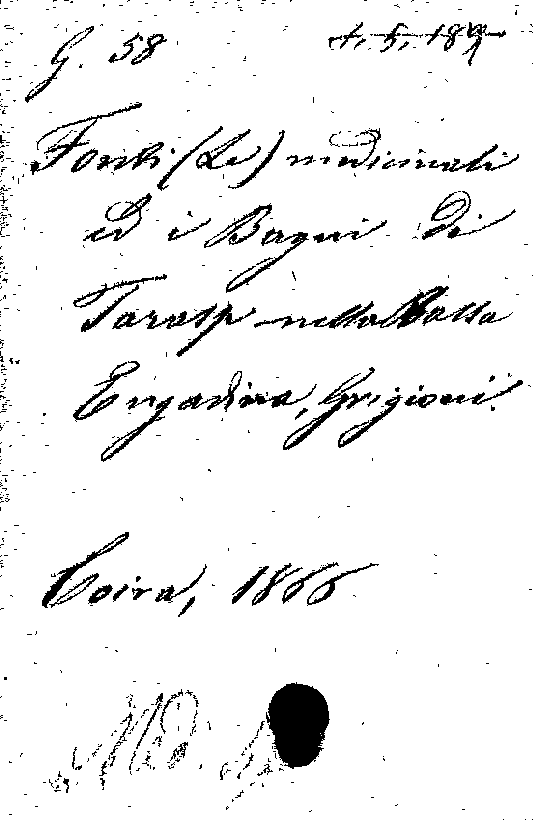 G. 58 4, 5, 189
Fonti (Le) medicinali
ed i Bagni di
Tarasp nella Bassa
Engadina, Grigioni.
Coira, 1866
Med.